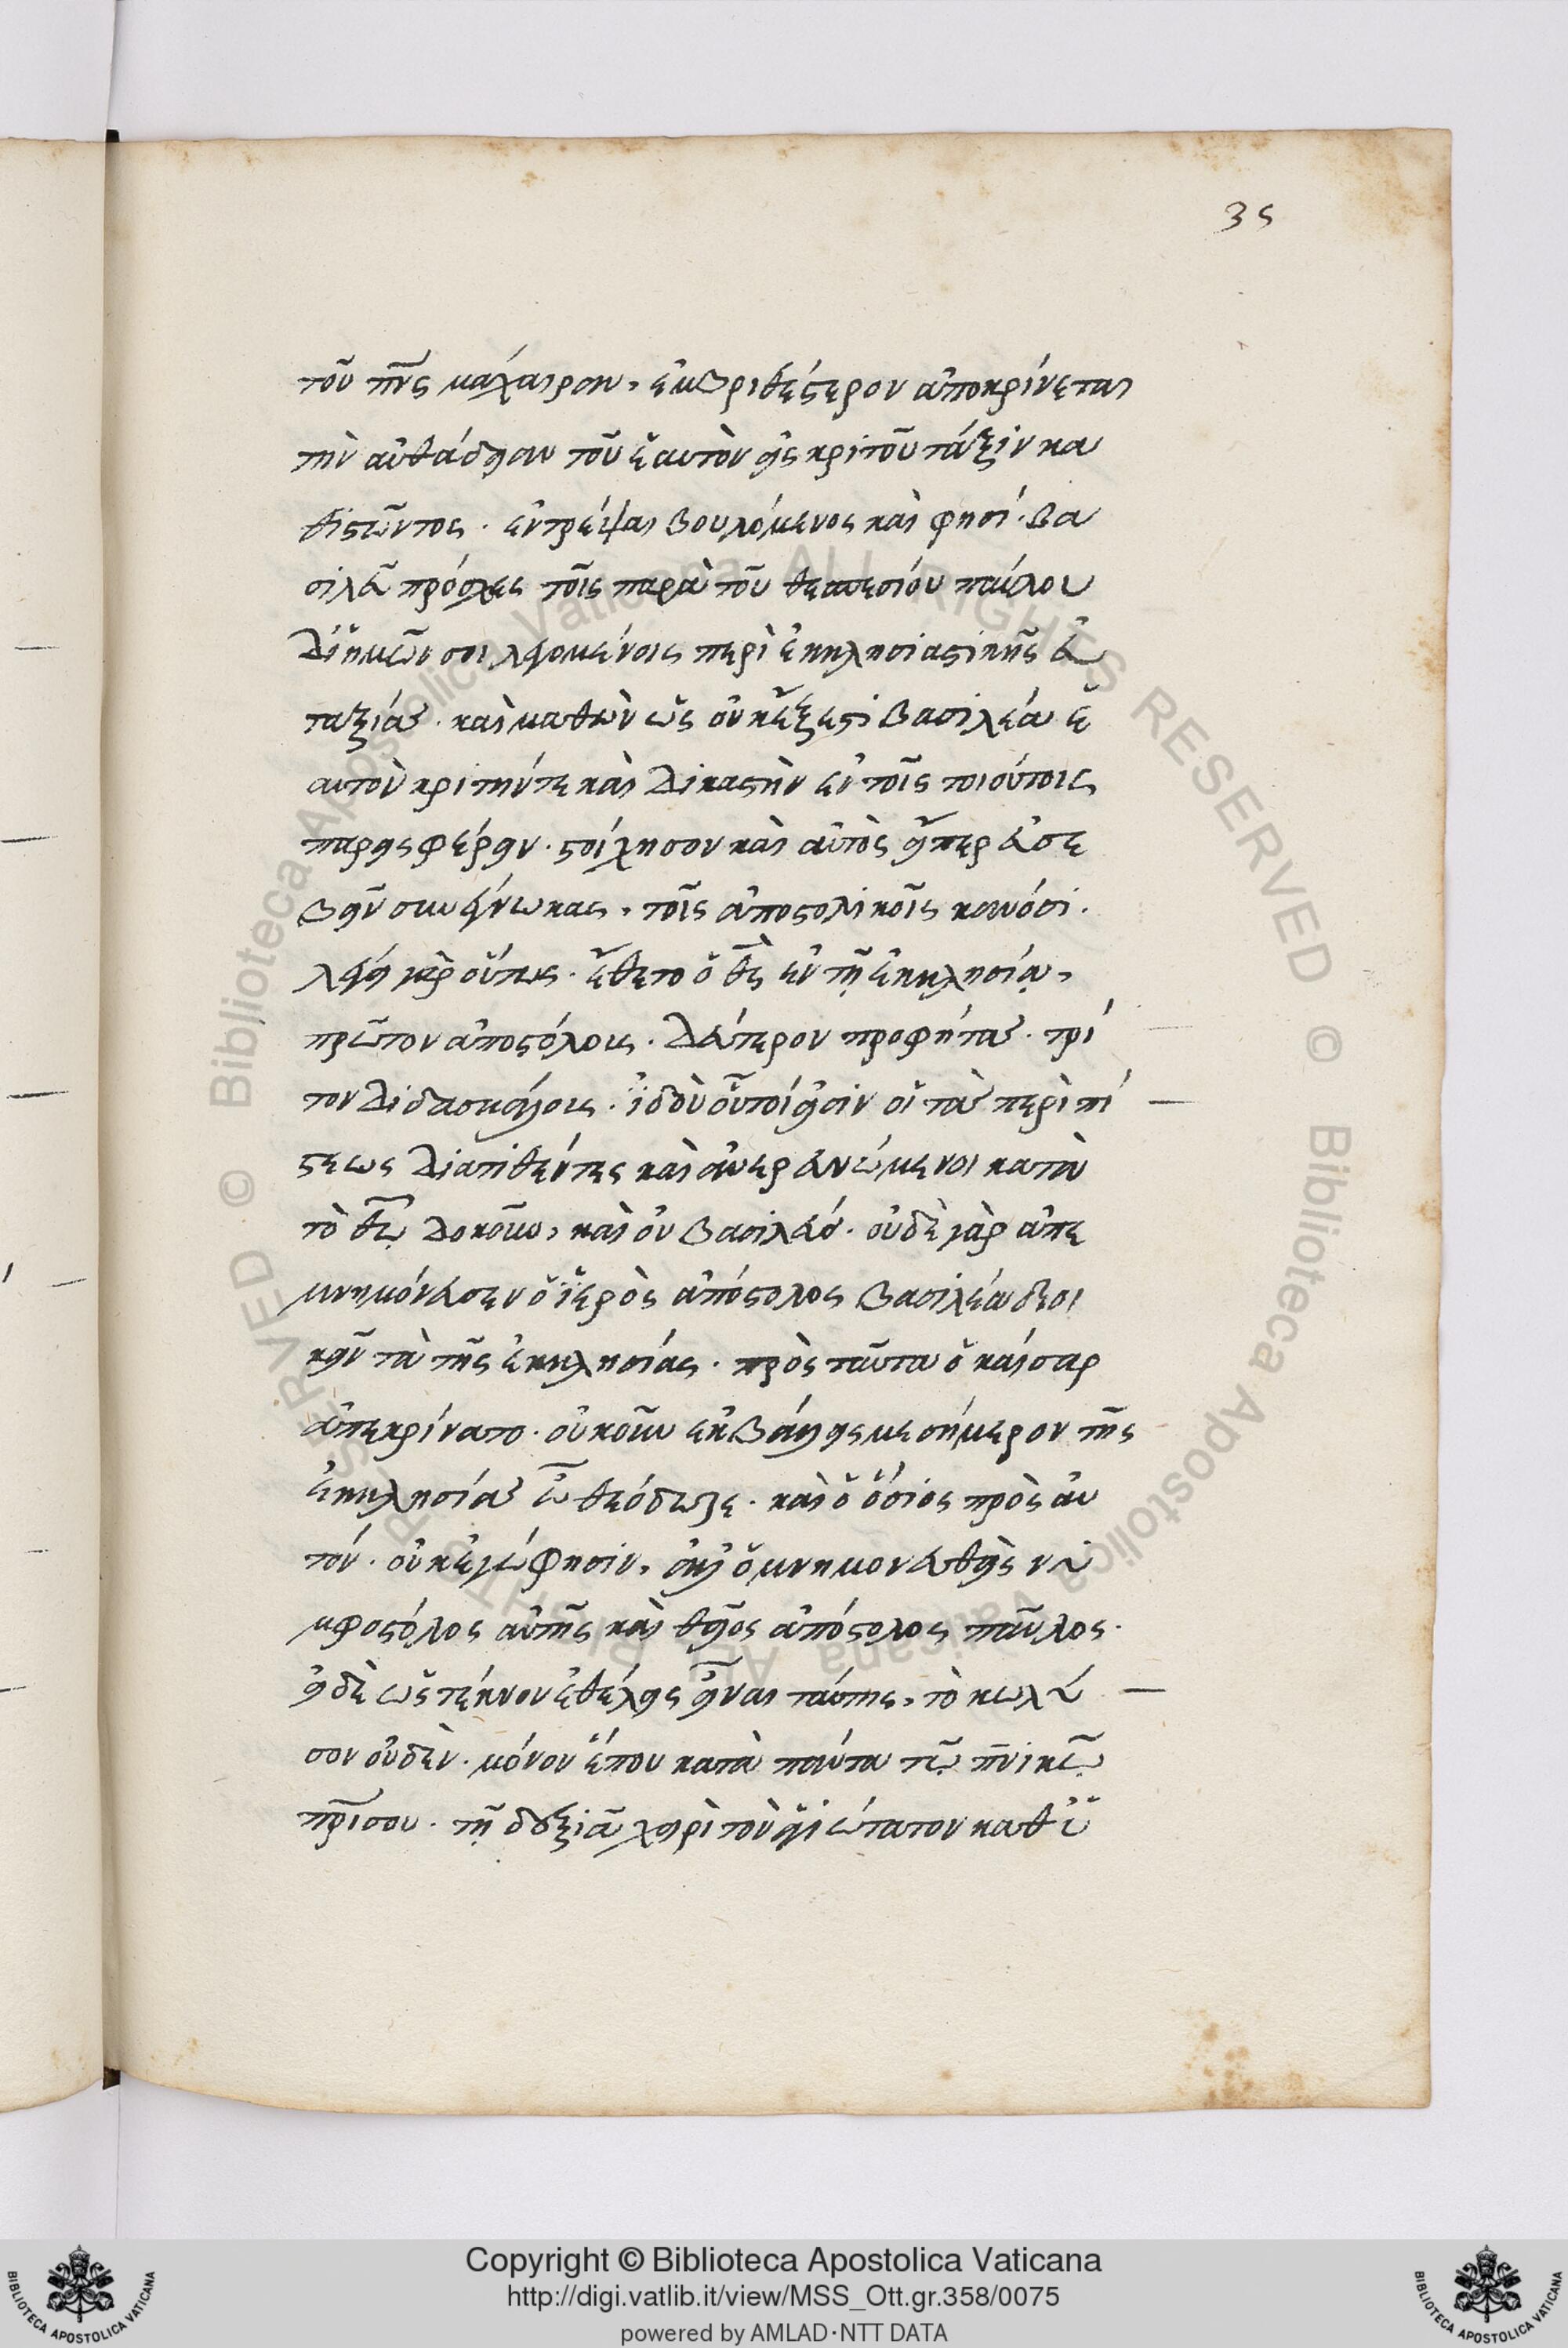 35
τοῦ πνς μάχαιραν, ἐμβριθέστερον ἀποκρίνεται
τὴν αὐθάδειαν τοῦ ἑαυτὸν εἰς κριτοῦ τάξιν κα
θιστῶντος · ἐντρέψαι βουλόμενος καὶ φησί · βα
σιλεῦ πρόσχες τοῖς παρὰ τοῦ θεσπεσίου παύλου
δι ἡμῶν σοι λεγομένοις περὶ ἐκκλησιαστικῆς εὐ
ταξίας · καὶ μαθὼν ὡς οὐκ ἔξεστι βασιλέα ἑ
αυτὸν κριτήν τε καὶ δικαστὴν ἐν τοῖς τοιούτοις
παρεισφέρειν · στοίχησον καὶ αὐτὸς εἴπερ εὐσε
βεῖν συνέγνωκας, τοῖς ἀποστολικοῖς κανόσι ·
λέγει γὰρ οὕτως · ἔθετο ὁ θς ἐν τῇ ἐκκλησίᾳ,
πρῶτον ἀποστόλους · δεύτερον προφήτας · τρί
τον διδασκάλους · ἰδοὺ οὗτοί εἰσιν οἱ τὰ περὶ πί
στεως διατιθέντες καὶ ἀνερευνώμενοι κατὰ
τὸ θῶ δοκοῦν, καὶ οὐ βασιλεύς · οὐδὲ γὰρ ἀπε
μνημόνευσεν ὁ ἱερὸς ἀπόστολος βασιλέα διοι
κεῖν τὰ τῆς ἐκκλησίας · πρὸς ταῦτα ὁ καίσαρ
ἀπεκρίνατο · οὐκοῦν ἐκβάλλεις με σήμερον τῆς
ἐκκλησίας ὦ θεόδωρε · καὶ ὁ ὅσιος πρὸς αὐ
τόν · οὐκ ἐγώ φησιν, ἀλλ ὁ μνημονευθεὶς νυ
μφοστόλος αὐτῆς καὶ θεῖος ἀπόστολος παῦλος ·
εἰ δὲ ὡς τέκνον ἐθέλεις εἶναι ταύτης, τὸ κωλύ
σον οὐδὲν · μόνον ἕπου κατὰ πάντα τῷ πνικῷ
πρί σου · τῇ δεξιᾷ χειρὶ τὸν ἁγιώτατον καθυ
Copyright © Biblioteca Apostolica Vaticana
http://digi.vatlib.it/view/MSS_Ott.gr.358/0075
powered by AMLAD·NTT DATA